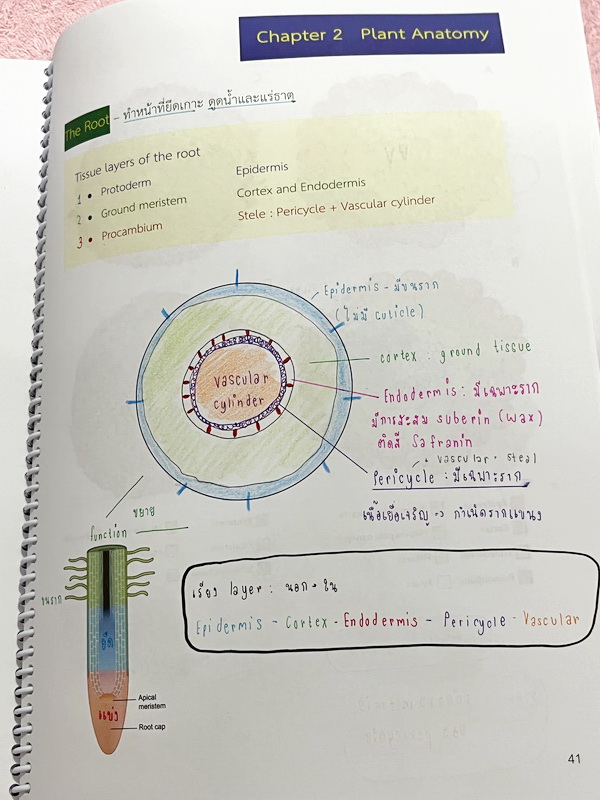 Chapter 2 Plant Anatomy
The Root - ทำหน้าที่ยึดเกาะ ดูดน้ำและแร่ธาตุ
Tissue layers of the root
1 • Protoderm Epidermis
2 • Ground meristem Cortex and Endodermis
3 • Procambium Stele : Pericycle + Vascular cylinder
Epidermis - มีขนราก
(ไม่มี cuticle)
cortex : ground tissue
Vascular
cylinder
Endodermis : มีเฉพาะราก
มีการสะสม suberin (wax)
ติดสี Safranin
+ vascular = steal
Pericycle : มีเฉพาะราก
เนื้อเยื่อเจริญ → กำเนิดรากแขนง
ขยาย
function
ขนราก
ยืด
แบ่ง
Apical
meristem
Root cap
เรียง layer : นอก → ใน
Epidermis - Cortex - Endodermis - Pericycle - Vascular
41